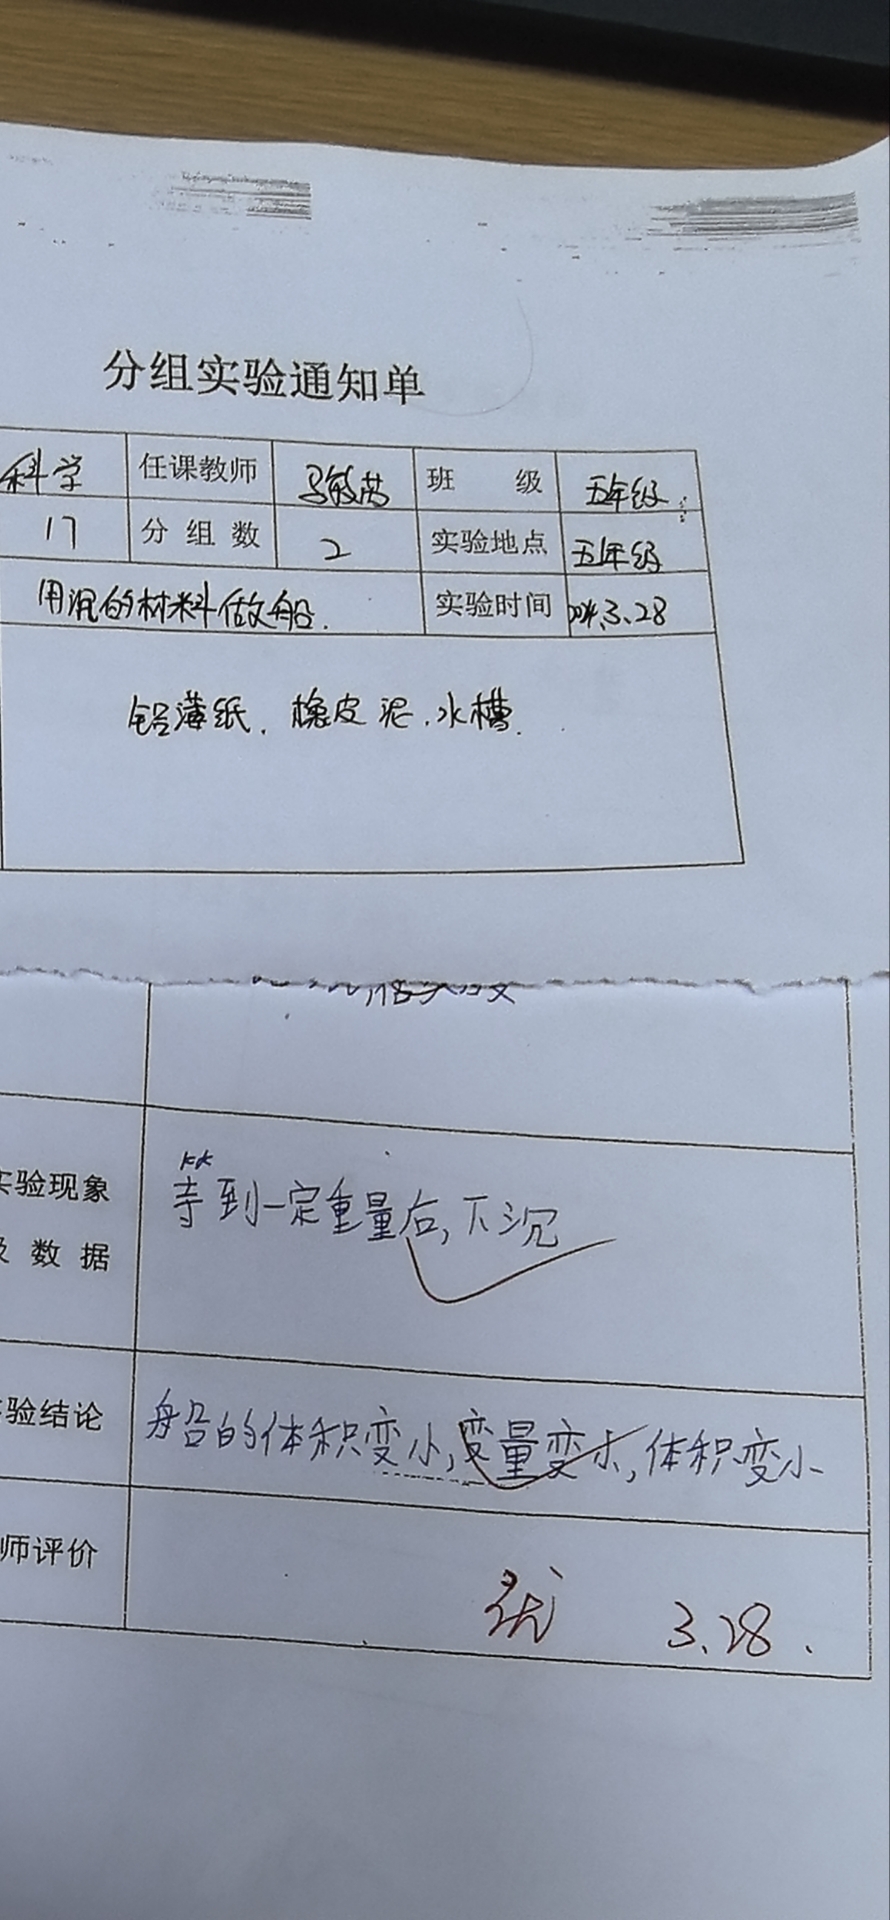 分组实验通知单
科学 任课教师 马敏芳 班 级 五年级
17 分组数 2 实验地点 五年级
用沉的材料做船. 实验时间 2024.3.28
铝薄纸、橡皮泥、水槽.
实验现象 等到一定重量后,下沉
及数据
验结论 船的体积变小,变量变大,体积变小
师评价 优 3.28.